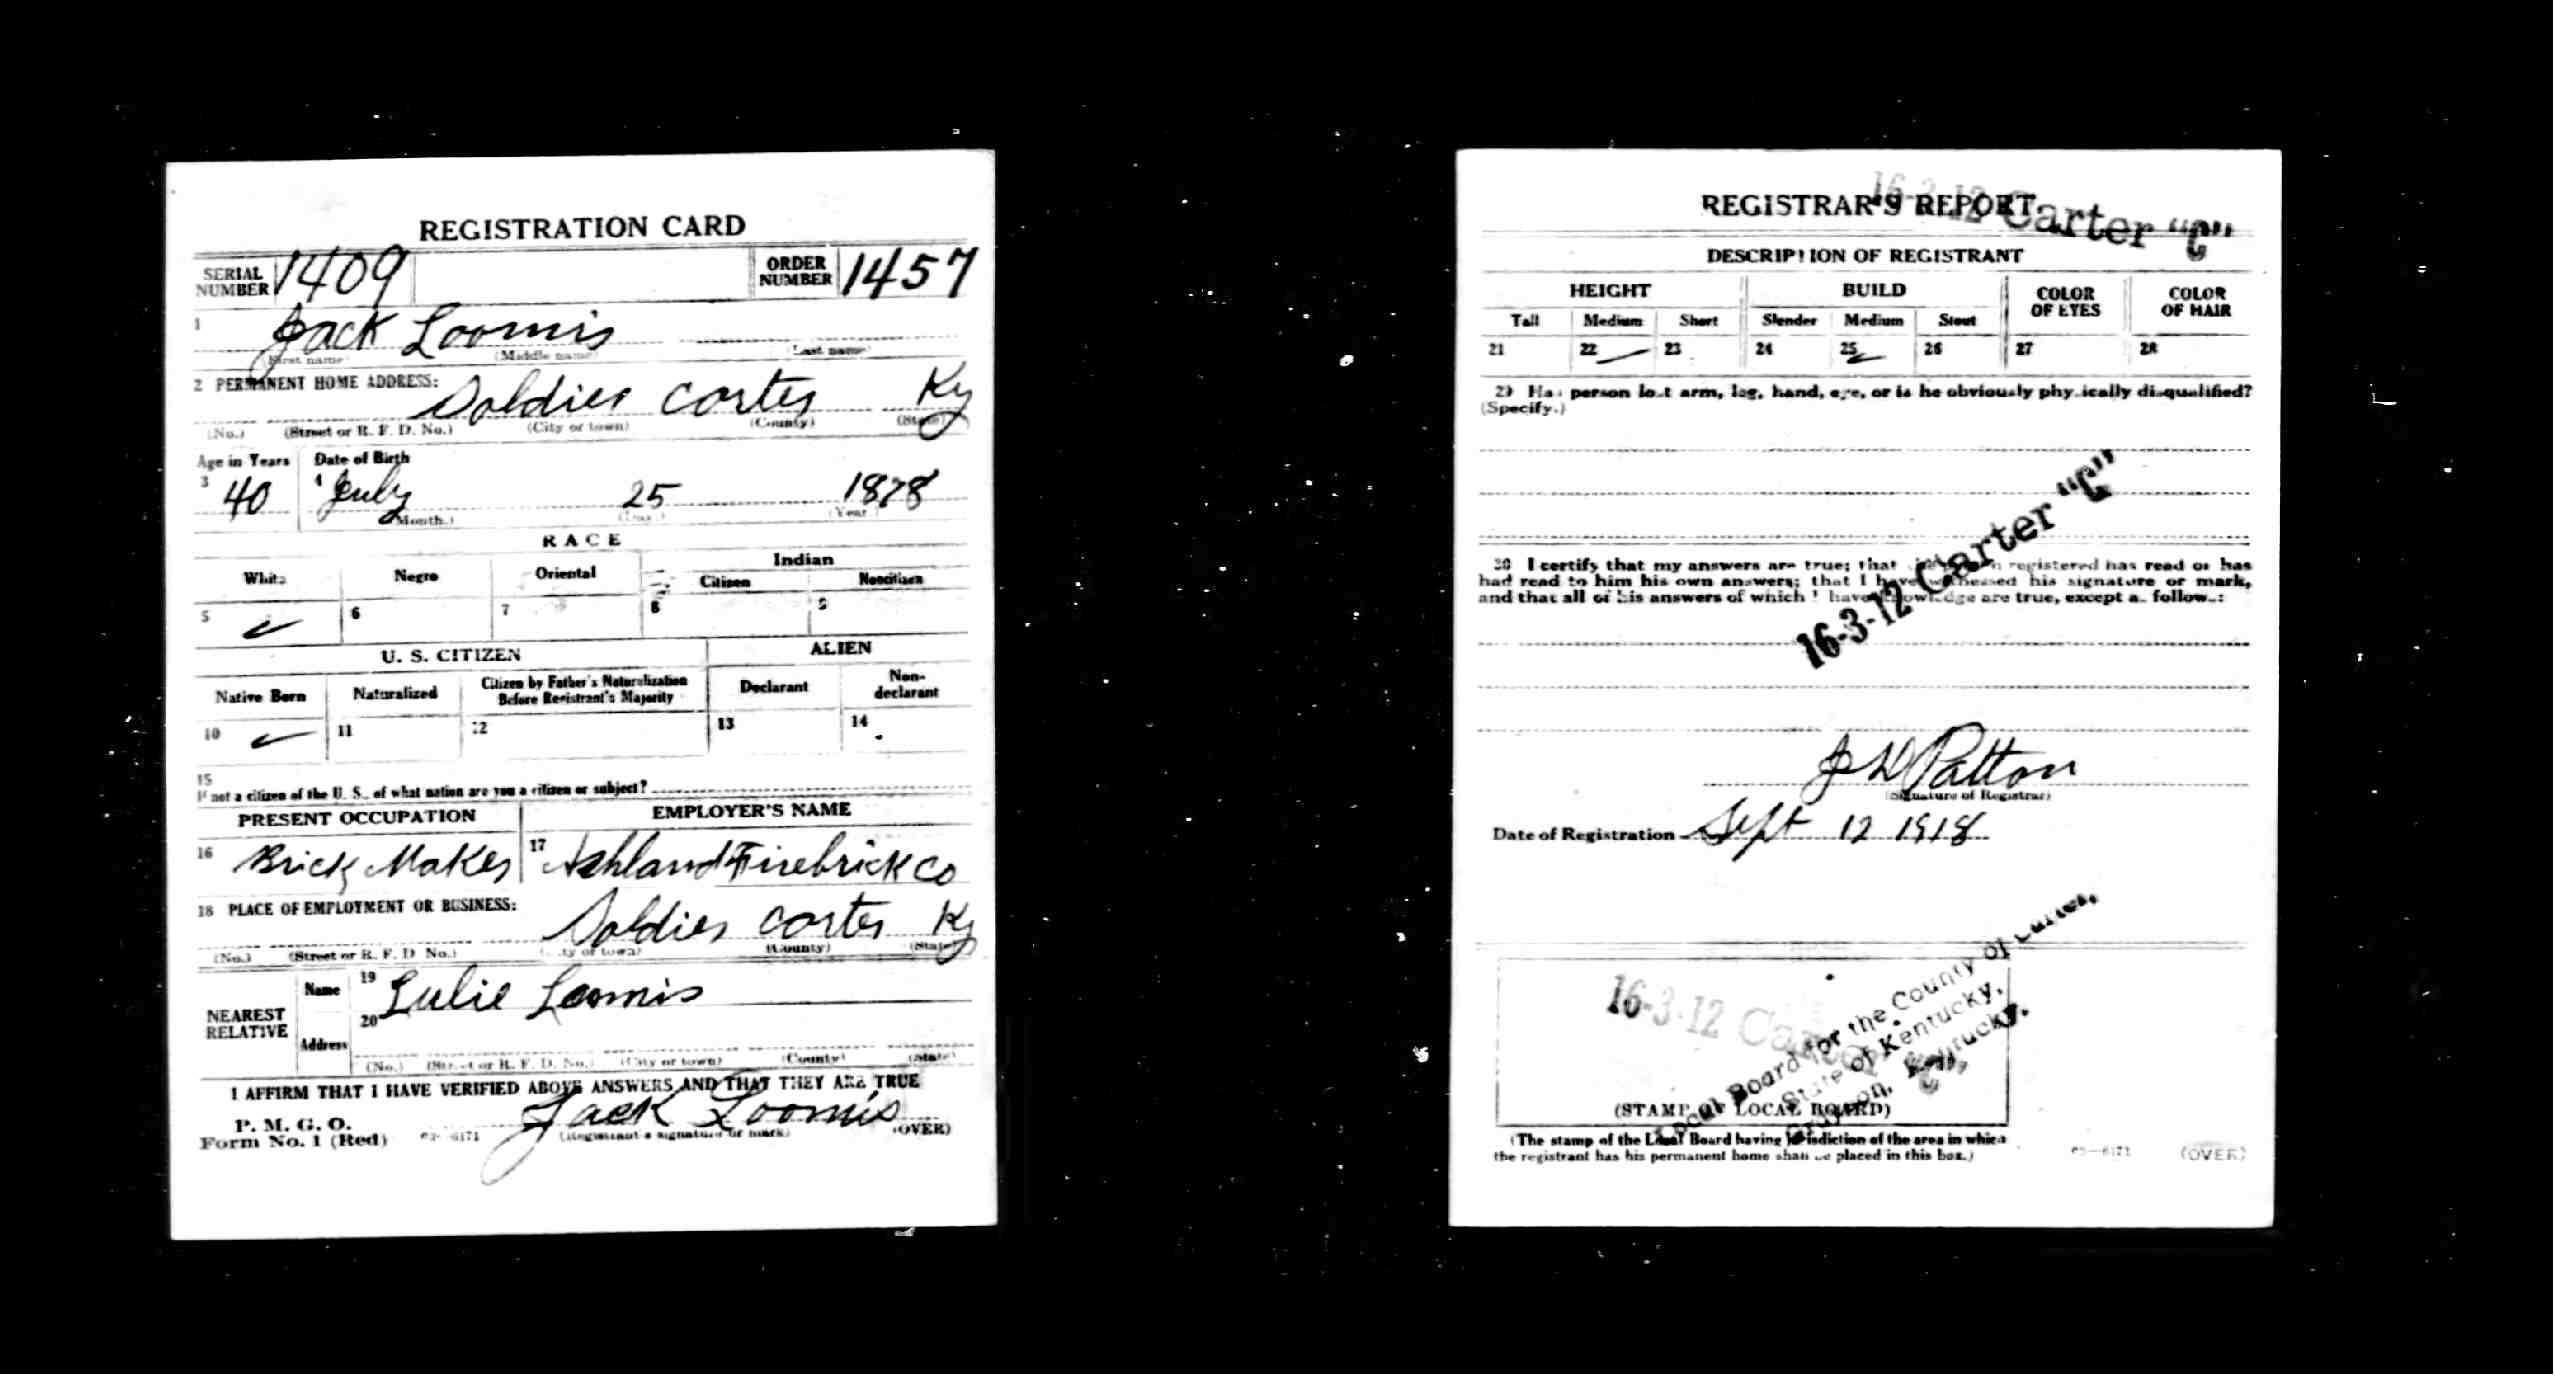 REGISTRATION CARD
SERIAL NUMBER 1409 ORDER NUMBER 1457
1 Jack Loomis
(First name) (Middle name) (Last name)
2 PERMANENT HOME ADDRESS:
Soldier Carter Ky
(No.) (Street or R. F. D. No.) (City or town) (County) (State)
Age in Years Date of Birth
3 40 4 July 25 1878
(Month.) (Day.) (Year.)
RACE
White Negro Oriental Indian
Citizen Noncitizen
5 ✓ 6 7 8 9
U. S. CITIZEN ALIEN
Native Born Naturalized Citizen by Father's Naturalization Before Registrant's Majority Declarant Non-declarant
10 ✓ 11 12 13 14
15
If not a citizen of the U. S., of what nation are you a citizen or subject?
PRESENT OCCUPATION EMPLOYER'S NAME
16 Brick Maker 17 Ashland Firebrick Co
18 PLACE OF EMPLOYMENT OR BUSINESS:
Soldier Carter Ky
(No.) (Street or R. F. D. No.) (City or town) (County) (State)
NEAREST RELATIVE
Name 19 Lulie Loomis
Address 20
(No.) (Street or R. F. D. No.) (City or town) (County) (State)
I AFFIRM THAT I HAVE VERIFIED ABOVE ANSWERS AND THAT THEY ARE TRUE
P. M. G. O.
Form No. 1 (Red) 03-6171 Jack Loomis
(Registrant's signature or mark) (OVER)
REGISTRAR'S REPORT
16-3-12 Carter "C"
DESCRIPTION OF REGISTRANT
HEIGHT BUILD COLOR OF EYES COLOR OF HAIR
Tall Medium Short Slender Medium Stout
21 22 ✓ 23 24 25 ✓ 26 27 28
29 Has person lost arm, leg, hand, eye, or is he obviously physically disqualified?
(Specify.)
16-3-12 Carter "C"
30 I certify that my answers are true; that the person registered has read or has
had read to him his own answers; that I have witnessed his signature or mark,
and that all of his answers of which I have knowledge are true, except as follows:
J D Patton
(Signature of Registrar)
Date of Registration Sept 12 1918
16-3-12 Carter "C"
Local Board for the County of Carter,
State of Kentucky,
Grayson, Kentucky.
(STAMP OF LOCAL BOARD)
(The stamp of the Local Board having jurisdiction of the area in which
the registrant has his permanent home shall be placed in this box.)
03-6171 (OVER)